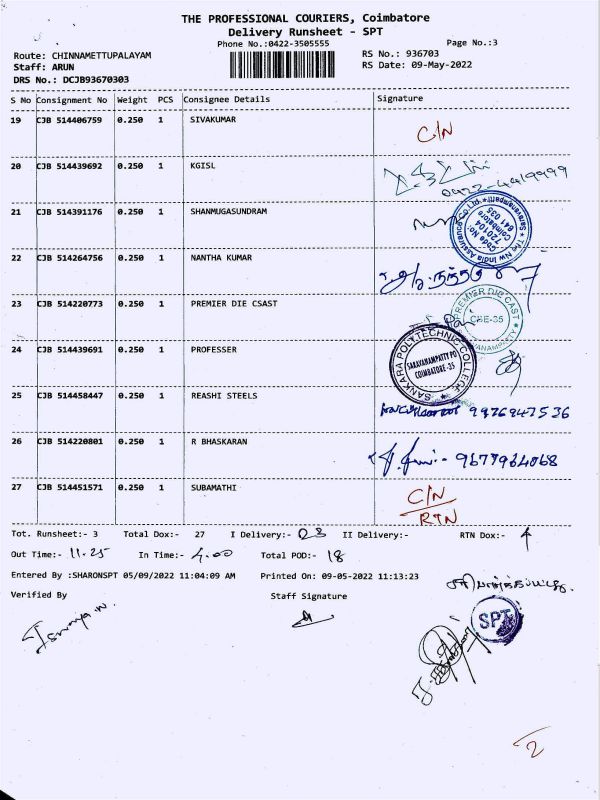 THE PROFESSIONAL COURIERS, Coimbatore
Delivery Runsheet - SPT
Phone No.:0422-3505555
Page No.:3
Route: CHINNAMETTUPALAYAM
RS No.: 936703
Staff: ARUN
RS Date: 09-May-2022
DRS No.: DCJB93670303
S No Consignment No Weight PCS Consignee Details Signature
19 CJB 514406759 0.250 1 SIVAKUMAR C/N
20 CJB 514439692 0.250 1 KGISL
0422-4419999
21 CJB 514391176 0.250 1 SHANMUGASUNDRAM
The New India Assurance Co.Ltd. Saravanampatti
Code No:
720104
Coimbatore
641 035
22 CJB 514264756 0.250 1 NANTHA KUMAR
23 CJB 514220773 0.250 1 PREMIER DIE CSAST
PREMIER DIE CAST
CBE-35
24 CJB 514439691 0.250 1 PROFESSER
SANKARA POLYTECHNIC COLLEGE
SARAVANAMPATTY PO
COIMBATORE-35
25 CJB 514458447 0.250 1 REASHI STEELS
26 CJB 514220801 0.250 1 R BHASKARAN
27 CJB 514451571 0.250 1 SUBAMATHI C/N
RTN
Tot. Runsheet:- 3 Total Dox:- 27 I Delivery:- 23 II Delivery:- RTN Dox:- 4
Out Time:- 11.25 In Time:- 4.00 Total POD:- 18
Entered By :SHARONSPT 05/09/2022 11:04:09 AM Printed On: 09-05-2022 11:13:23
Verified By Staff Signature
SPT
2